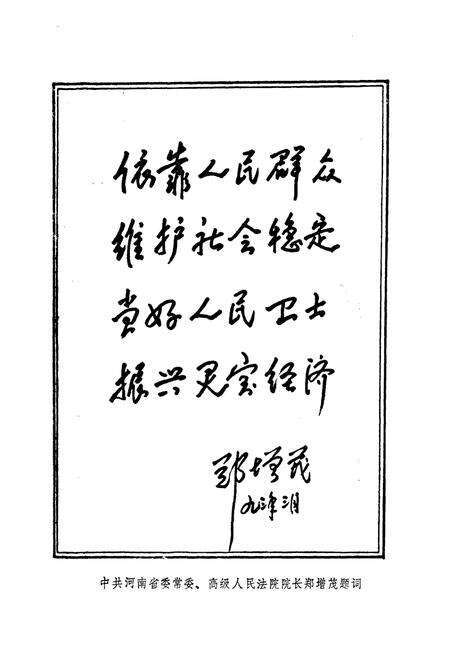 依靠人民群众
维护社会稳定
当好人民卫士
振兴灵宝经济
郑增茂
九三年三月
中共河南省委常委、高级人民法院院长郑增茂题词